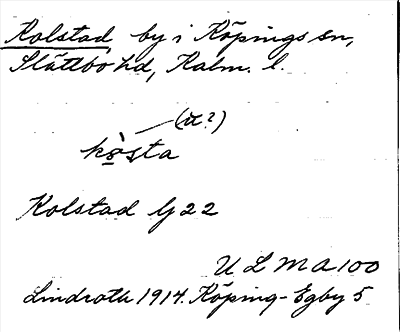 Kolstad, by i Köpings sn,
Slättbo hd, Kalm. l.
(u?)
kòsta
Kolstad Gj 22
ULMA 100
Lindroth 1914. Köping-Egby 5